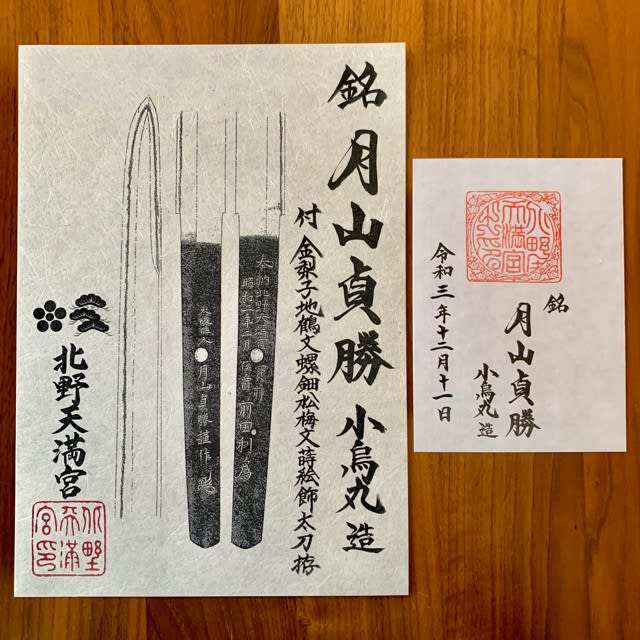 銘 月山貞勝 小烏丸造
付 金梨子地鶴文螺鈿松梅文蒔絵飾太刀拵
月山貞勝謹作
北野天満宮
北野天満宮印
北野天満宮
銘
月山貞勝
小烏丸造
令和三年十二月十一日